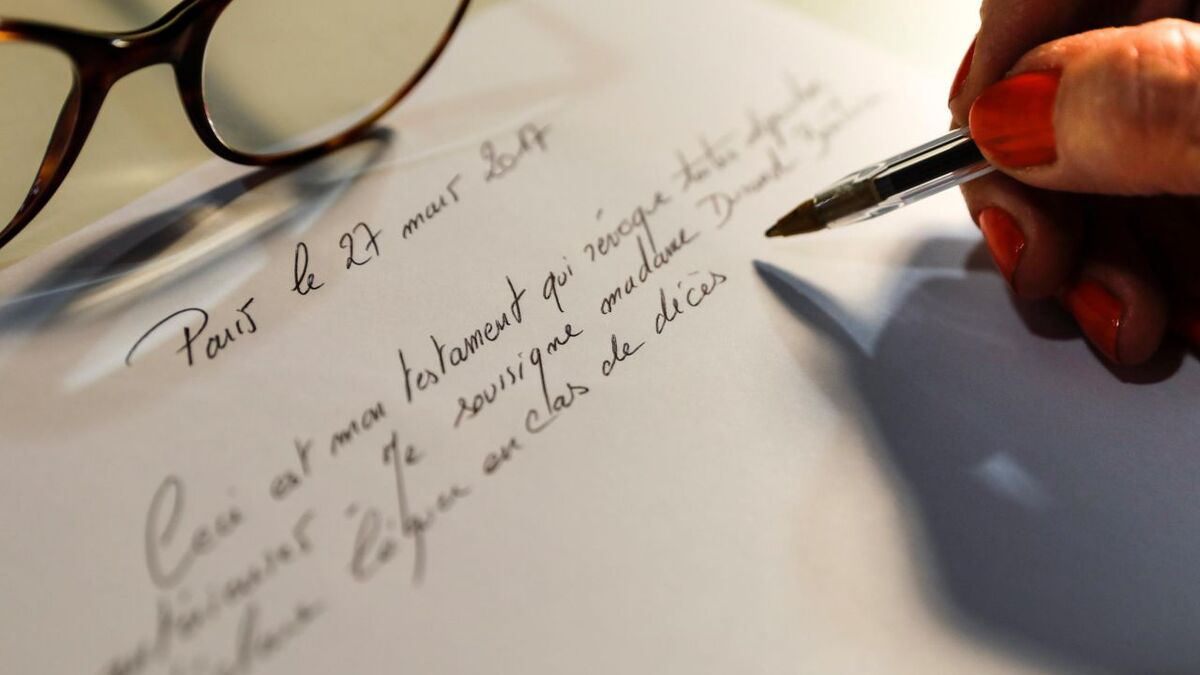 Paris le 27 mars 2017
Ceci est mon testament qui révoque toutes
antérieures. Je sousigne madame Durand
léguer en cas de décès